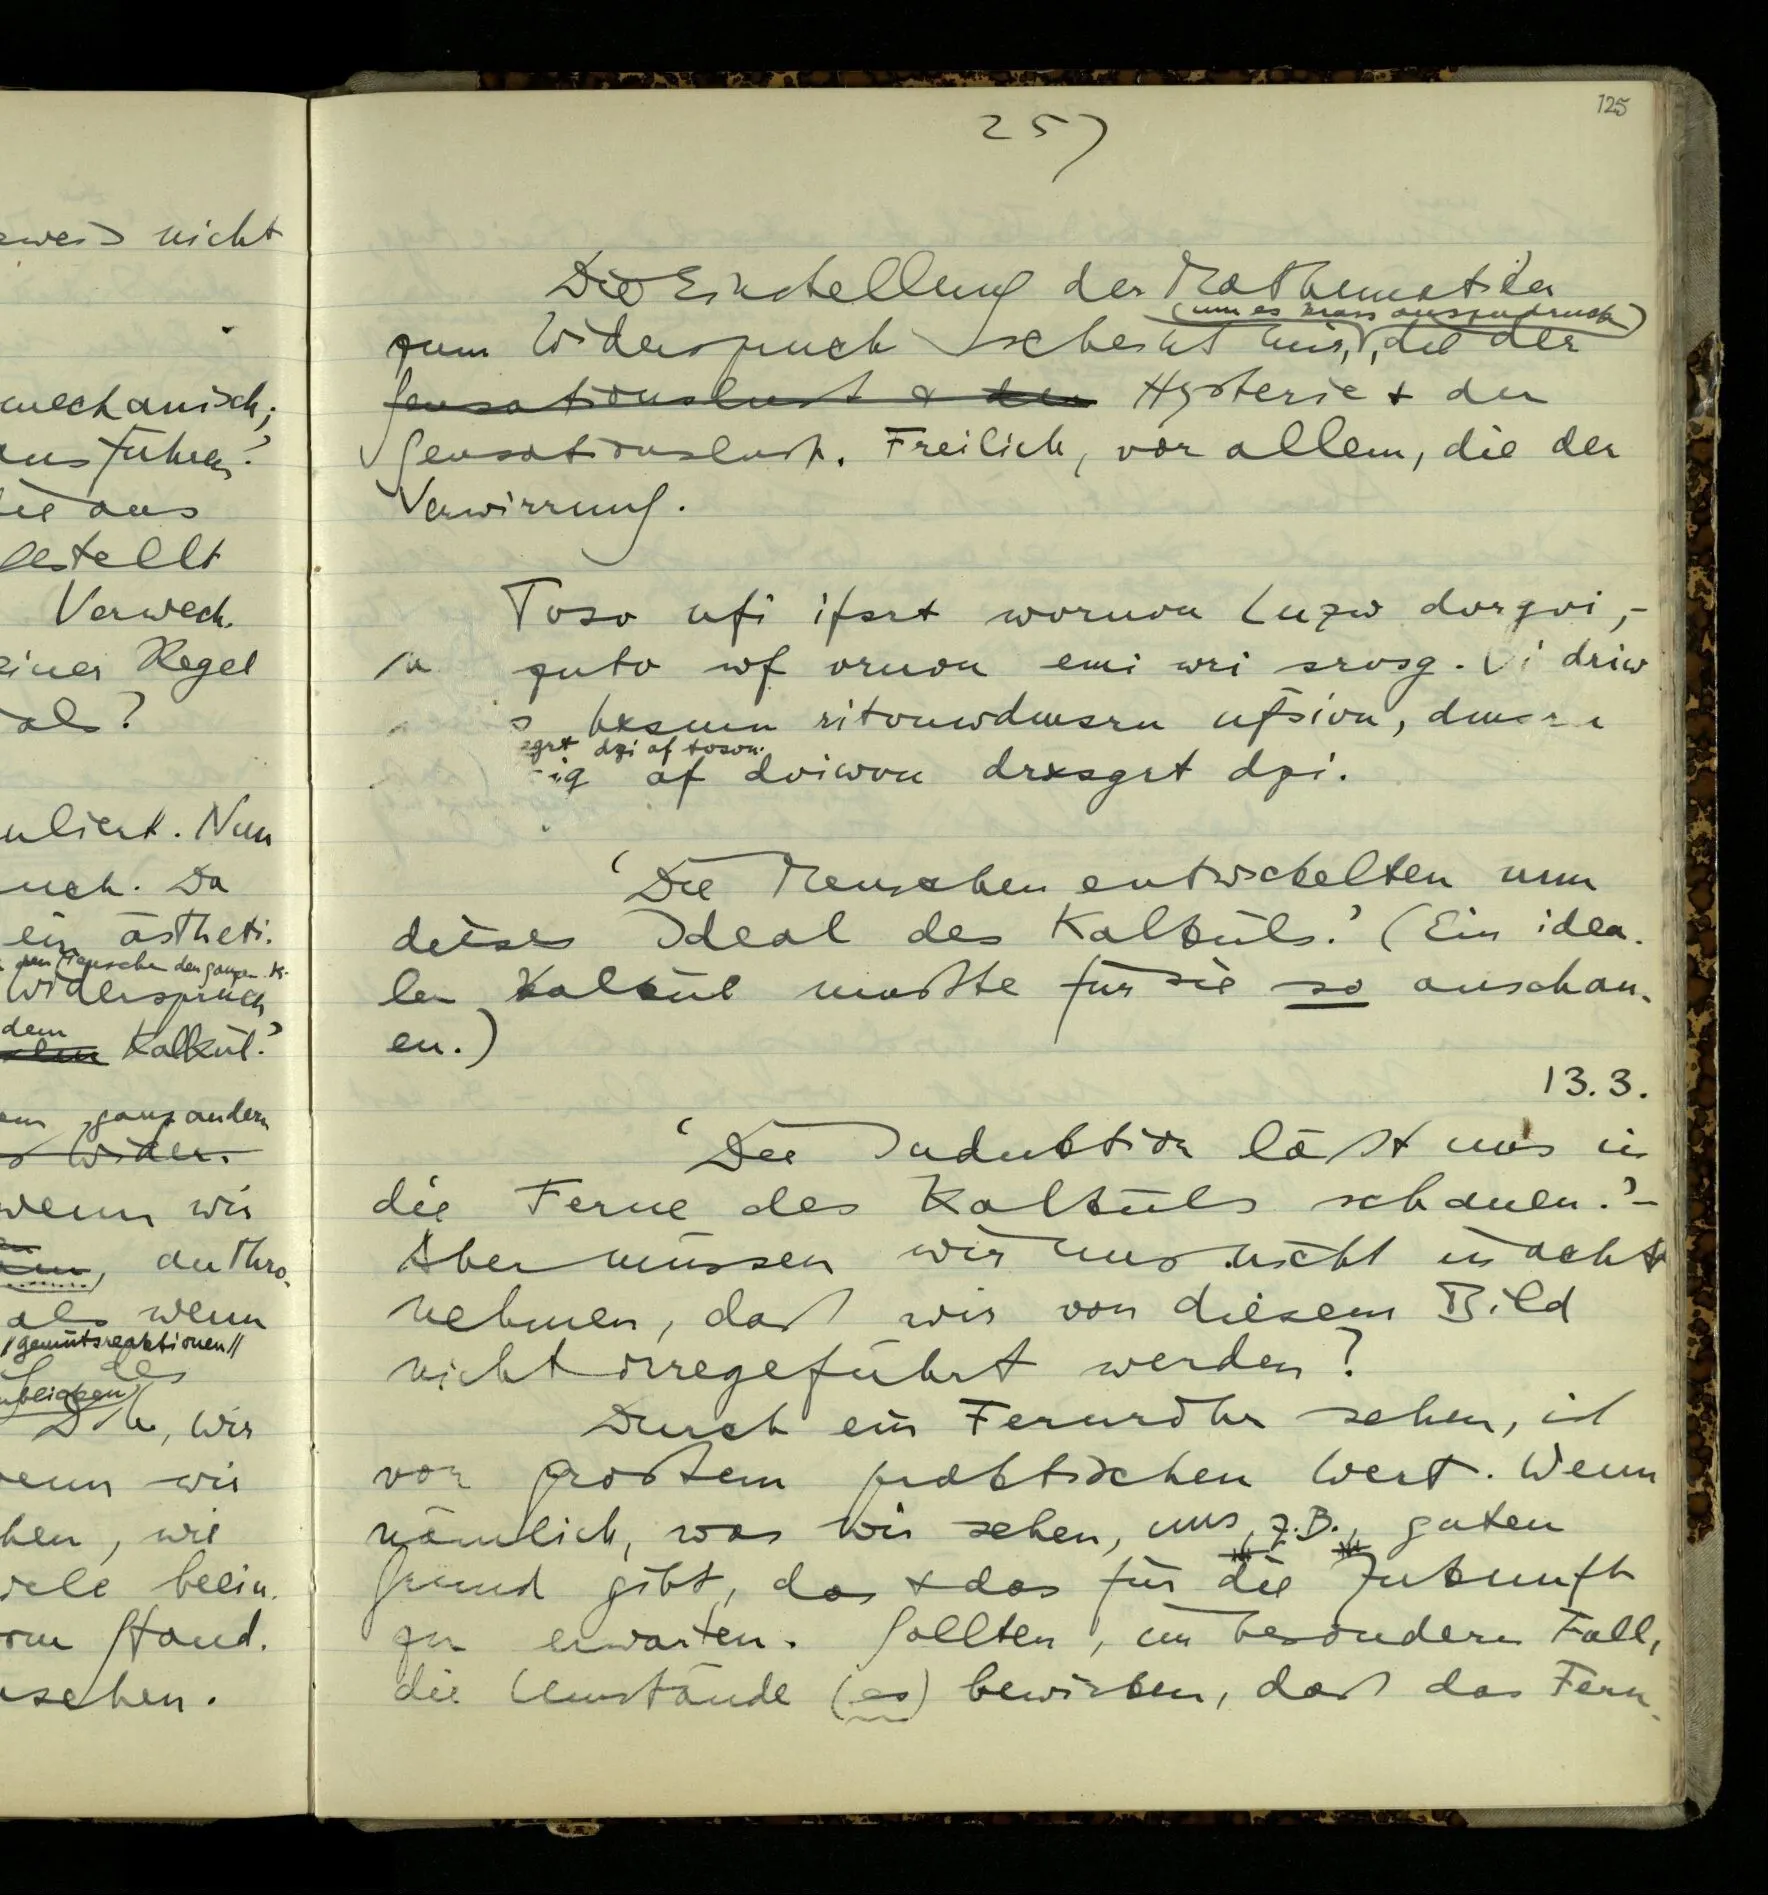 ewe⁠is nicht
mechanisch;
ausführen?
die aus
gestellt
Verwech-
einer Regel
als?
uliert. Nun
uch. Da
ein ästheti-
den Menschen den ganzen K-
Widerspruch
dem
Kalkül.'
ganz andern
Wider-
wenn wir
anthro-
als wenn
//gemütsreaktionen//
des
D.h., wir
wenn wir
hen, wie
viele beein-
vom Stand-
sehen.
125
257
Die Einstellung der Mathematiker
(um es krass auszudrücken)
zum Widerspruch scheint mir, die der
Sensationslust & der Hysterie & der
Sensationslust. Freilich, vor allem, die der
Verwirrung.
Toso ufi ifsrt wornon Luzw dorgvi,-
puto wf ornon emi wri srosg. Vi driw
bxsmm ritonwdmsrn ufsion,
sgrt dzi af toson.
af doiwon drxsgrt dzi.
'Die Menschen entwickelten nun
dieses Ideal des Kalküls.' (Ein idea-
ler Kalkül musste für sie so anschau-
en.)
13.3.
'Die Induktion läßt uns in
die Ferne des Kalküls schauen.'–
Aber müssen wir uns nicht in acht
nehmen, daß wir von diesem Bild
nicht irregeführt werden?
Durch ein Fernrohr sehen, ist
von großem praktischen Wert. Wenn
nämlich, was wir sehen, uns, z.B., guten
Grund gibt, das & das für die Zukunft
zu erwarten. Sollten, im besondern Fall,
die Umstände (es) bewirken, daß das Fern-